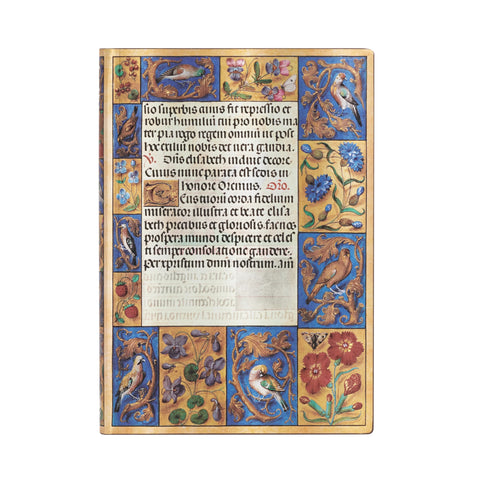 sio superbis cuius fit repressio et
robur humilium cui pro nobis ma
ter pia rogo regem omnium ut post
hoc exilium nobis det vera gaudia.
V. Dns elisabeth induit decore
Cuius nunc parata est sedis in
honore Oremus. Oro.
Tuorum corda fidelium
miserator illustra et beate elisa
beth precibus et gloriosis facnos
prospera mundi despicere et celes
ti semper consolatione gaudere.
Per xpistum dnm nostrum. am